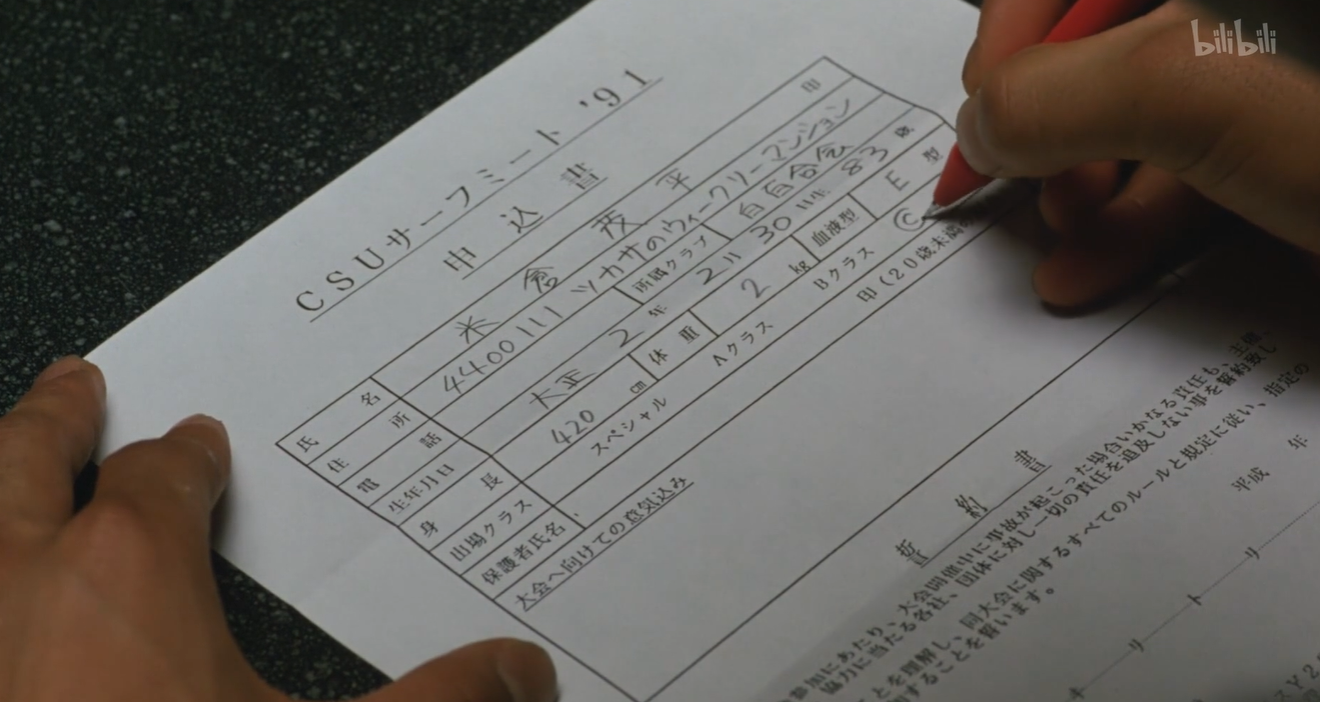 bilibili
CSUサーフミート '91
申込書
氏名 米倉 茂平 印
住所 4400111 ツカサのウィークリーマンション
電話 所属クラブ 百百合会
生年月日 大正 2年 211 30 83歳
身長 420 cm 体重 2 kg 血液型 E 型
出場クラス スペシャル Aクラス Bクラス C
保護者氏名 印(20歳未満
大会へ向けての意気込み
誓約書
参加にあたり、大会開催中に事故が起こった場合いかなる責任も、主催、
協力に当たる各社、団体に対し一切の責任を追及しない事を誓約致し
ことを理解し、同大会に関するすべてのルールと規定に従い、指定の
することを誓います。
平成 年